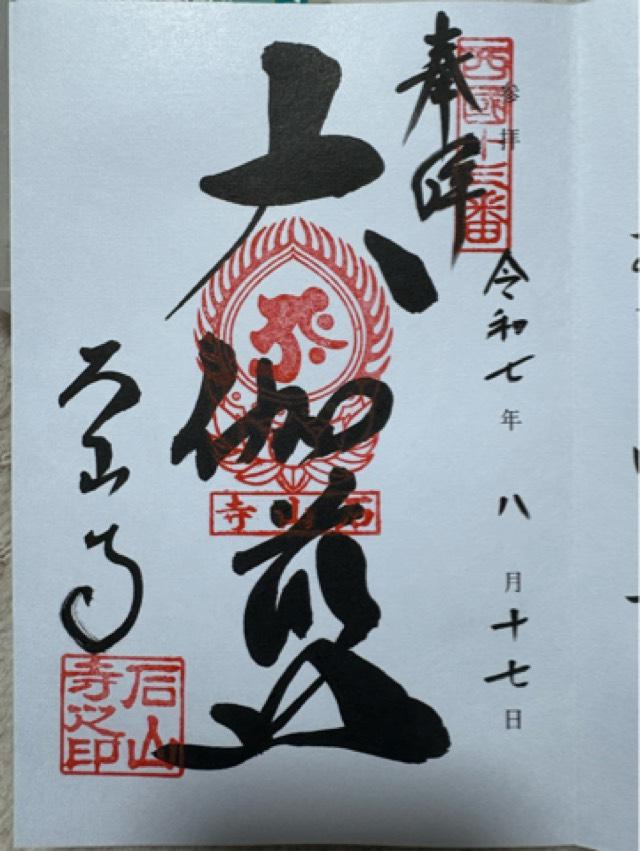 西國十三番
奉拝
参拝
令和七年八月十七日
大伽藍
石山寺
石山寺
石山寺之印